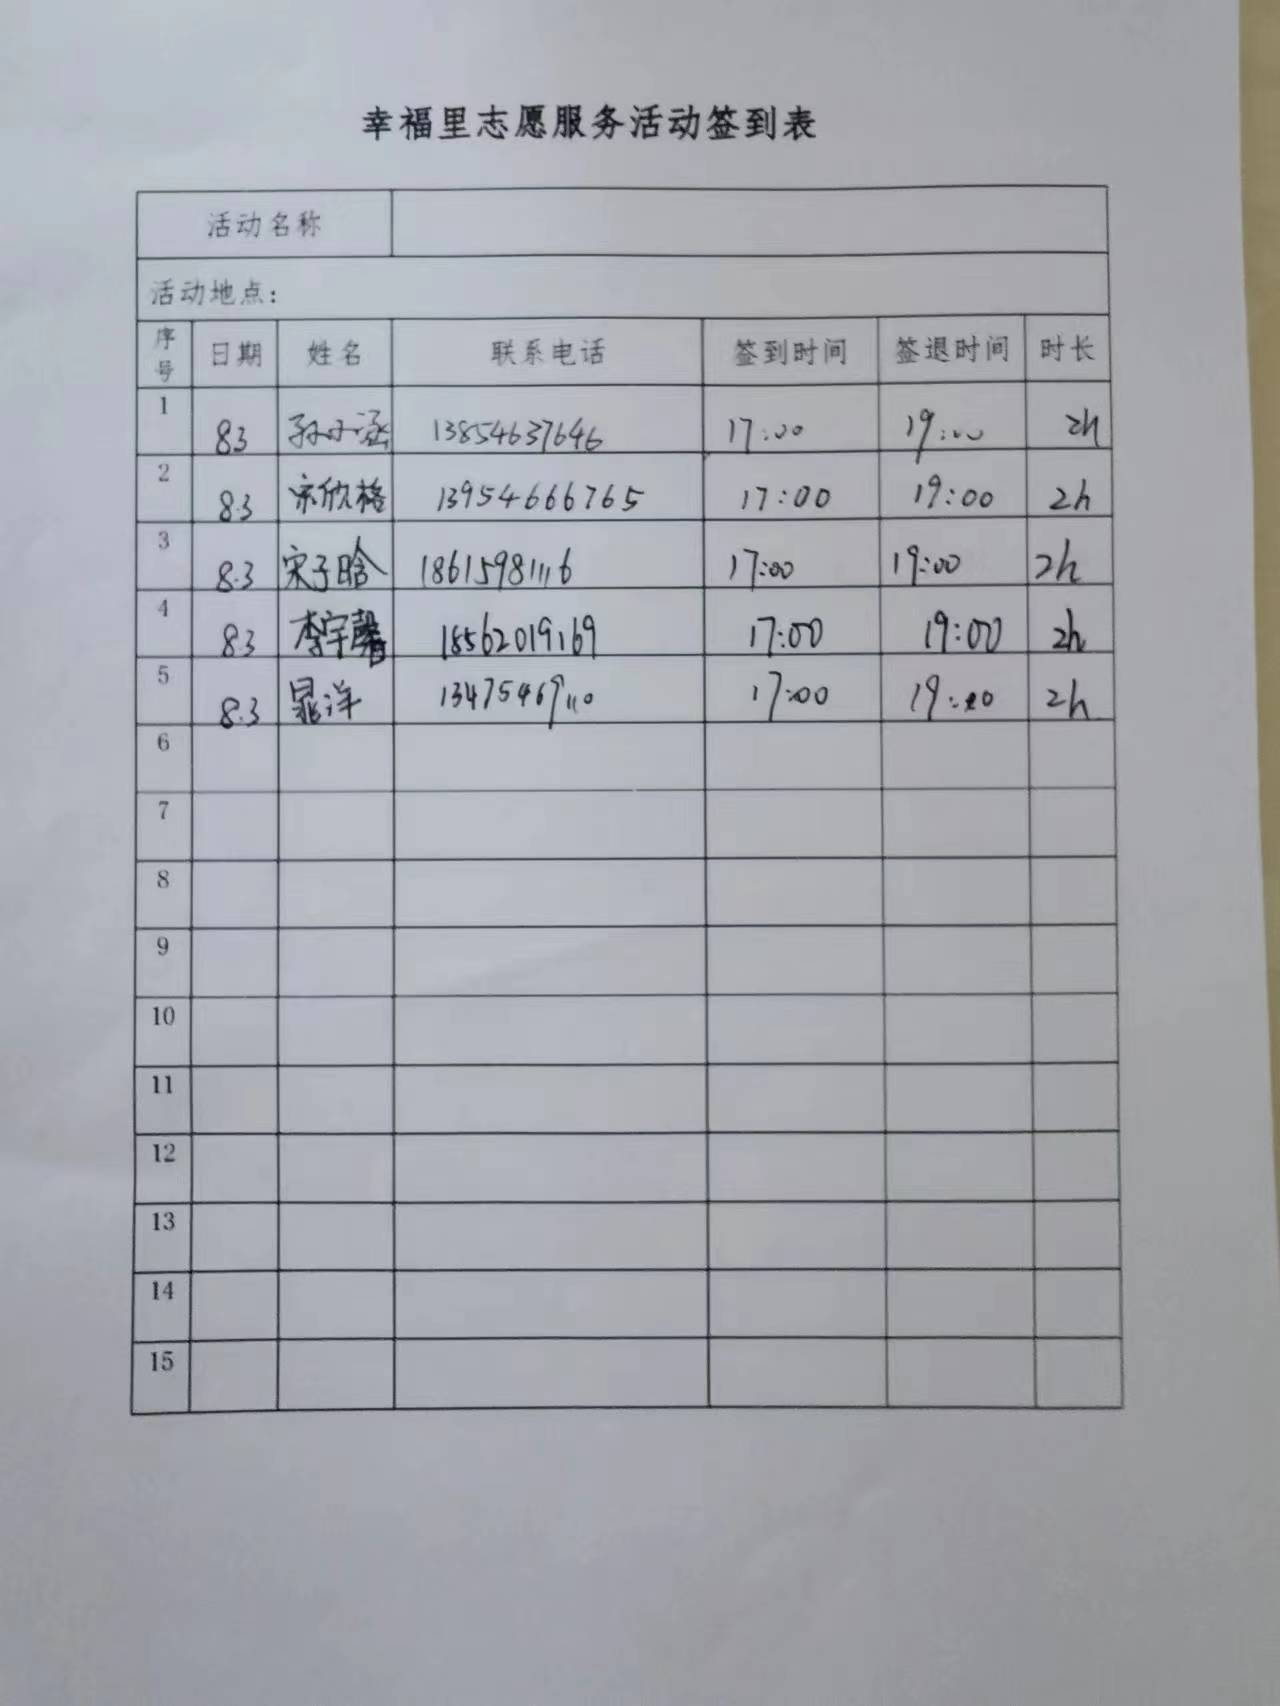 幸福里志愿服务活动签到表
活动名称
活动地点：
序号 日期 姓名 联系电话 签到时间 签退时间 时长
1 83 孙小涵 13854637646 17:00 19:00 2h
2 8.3 宋欣格 13954666765 17:00 19:00 2h
3 8.3 宋子晗 18615981116 17:00 19:00 2h
4 8.3 李宇馨 18562019169 17:00 19:00 2h
5 8.3 晁洋 13475469110 17:00 19:00 2h
6
7
8
9
10
11
12
13
14
15